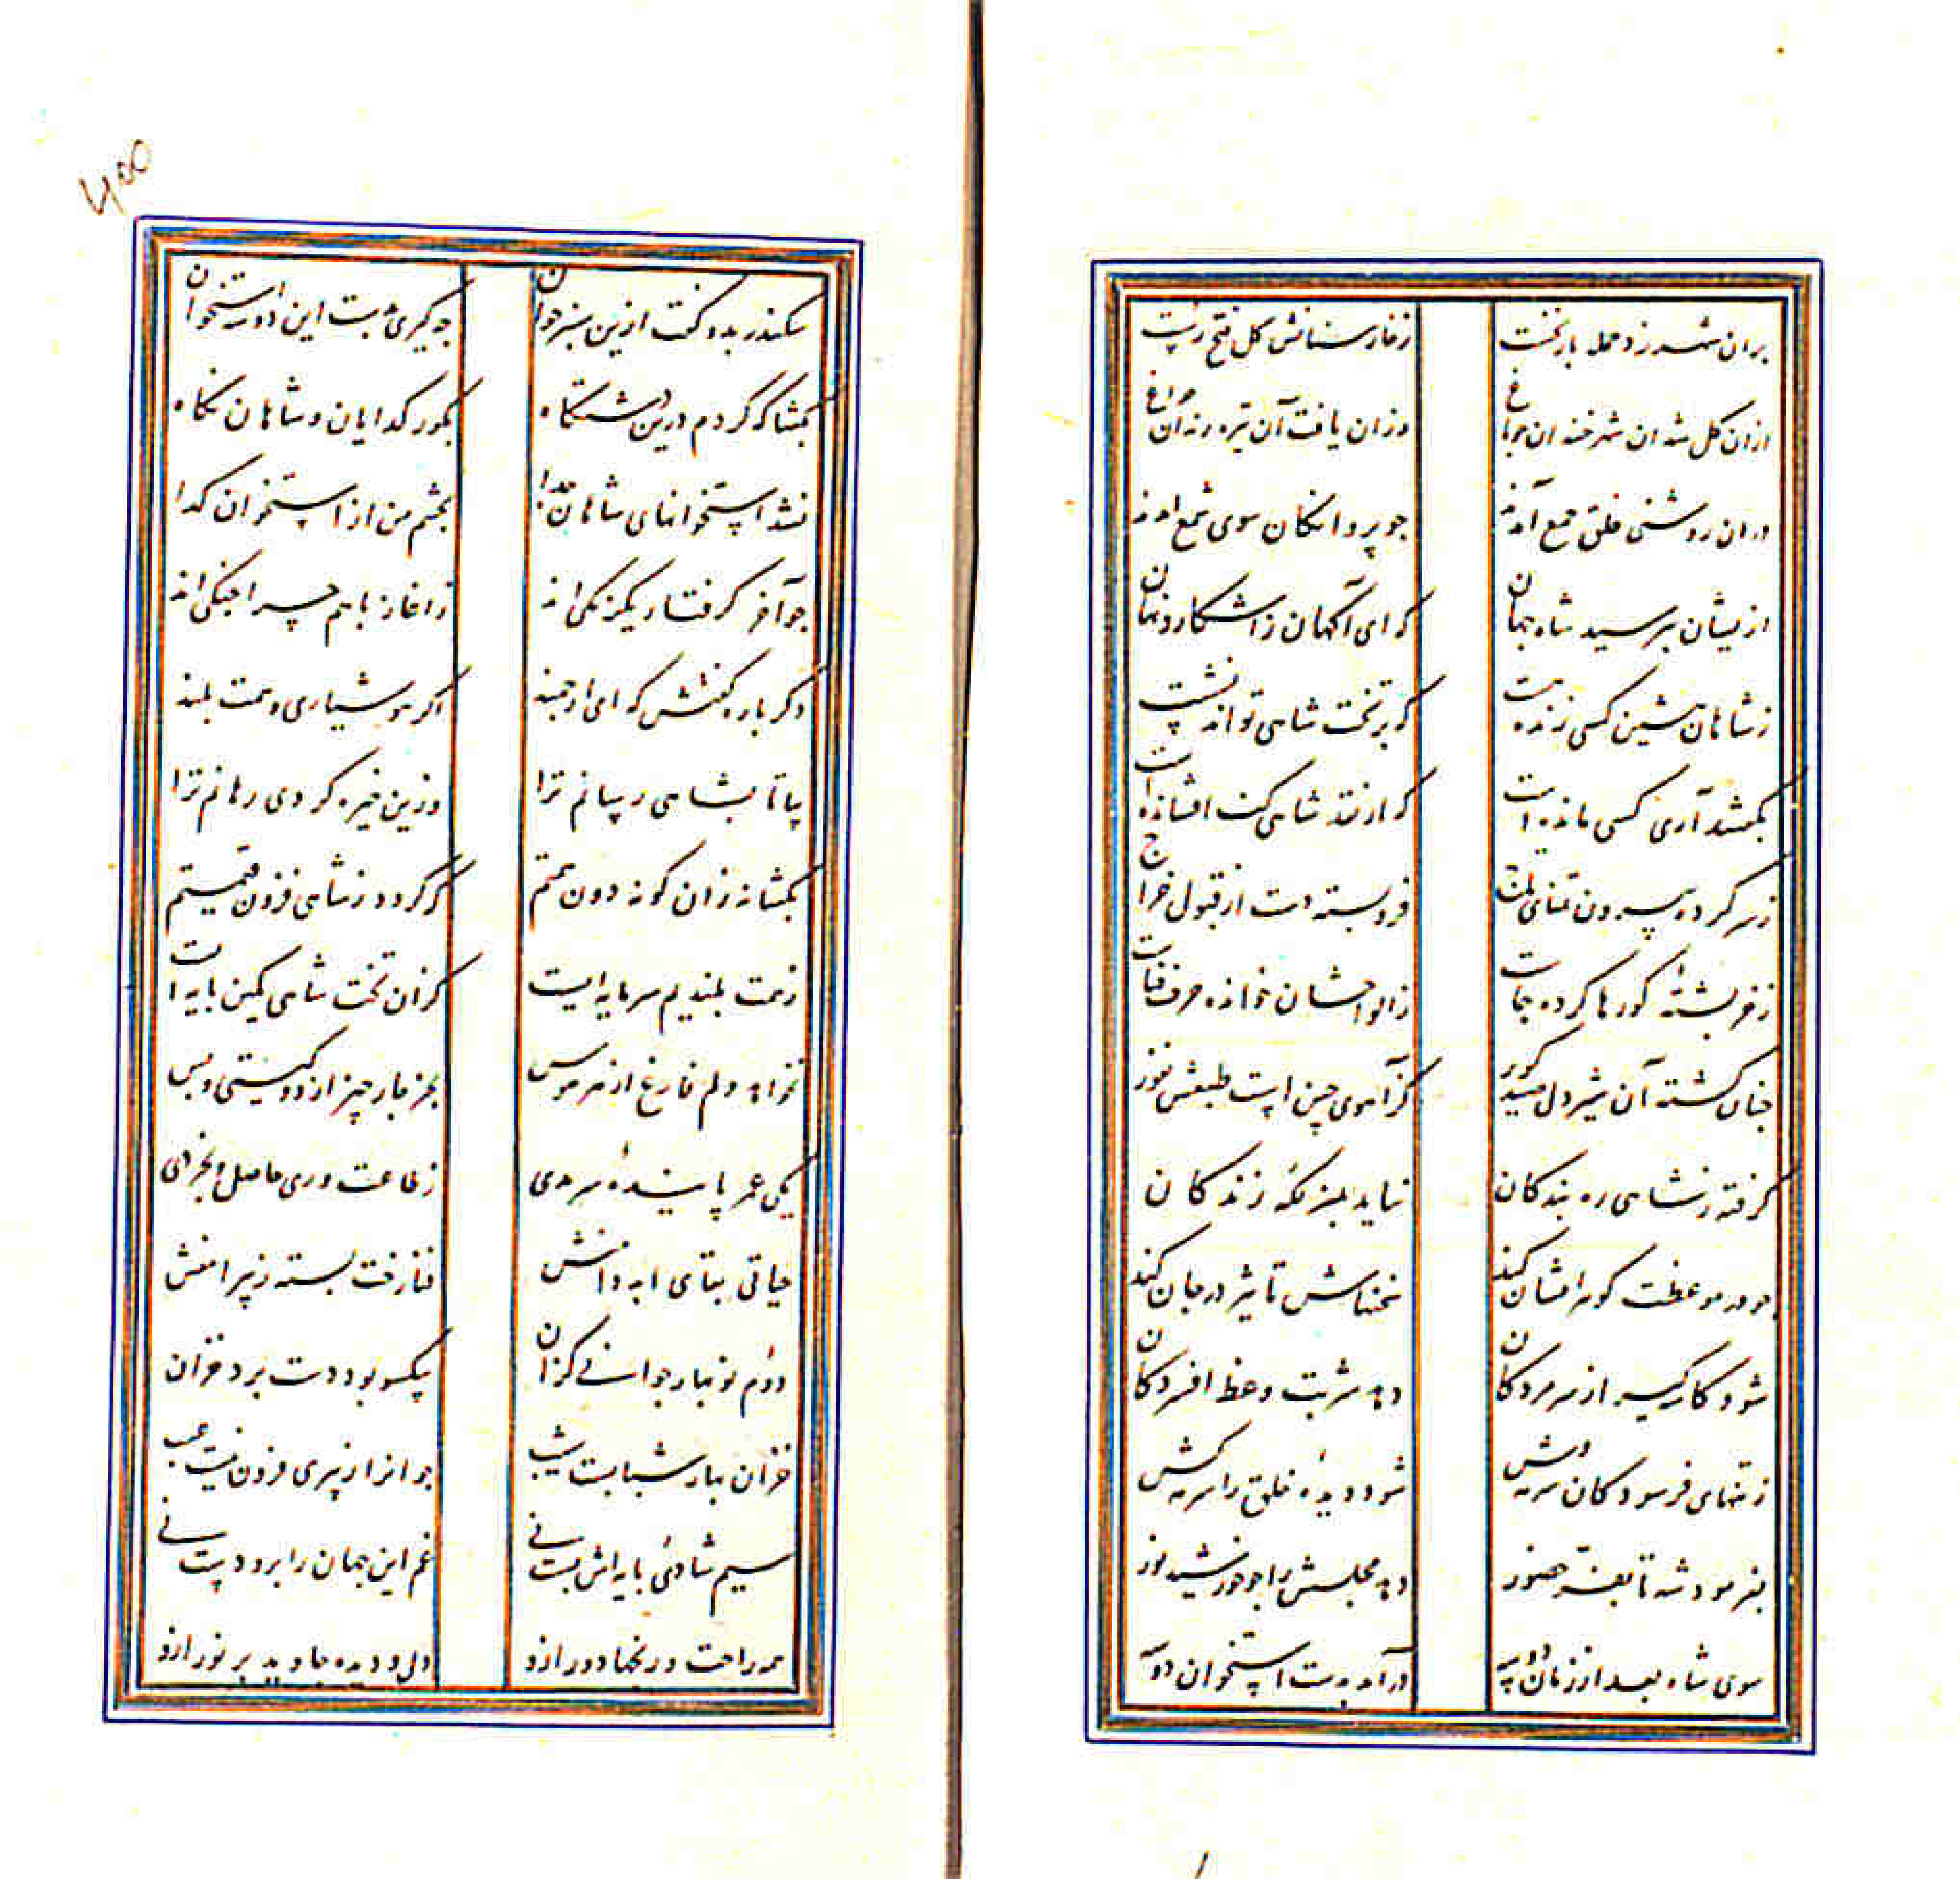 بران شهر زد حمله بار نخت زخار سنانش کل فتح رست
ازان کل شد ان شهر خندان جو باغ وزان یافت آن تیره رندان چراغ
دران روشنی خلق جمع آمدند جو پروانکان سوی شمع امدند
ازیشان بپرسید شاه جهان که ای آکهان ز اشکار و نهان
ز شاهان پیشین کسی زنده هست که بر تخت شاهی تواند نشست
بکفتند آری کسی مانده است که از نقد شاهی کف افشانده است
ز سر کرده بیرون تمنای تاج فرو بسته دست از قبول خراج
ز خرپشتهٔ کورها کرده جات ز الواحشان خوانده حرف نجات
جنان کشته آن شیر دل صید کور کز آهوی چین است طبعش نفور
کرفته ز شاهی ره بندکان نیاید بسر نکه زندکان
جو در موعظت کوهر افشان کند سخنهاش تاثیر در جان کند
شود کاسه کیر از سر مردکان دهد شربت وعظ افسردکان
ز تنهای فرسودکان سرمه وش شود دیدهٔ خلق را سرمه کش
بفرمود شه تا بعز حضور دهد مجلسش را جو خورشید نور
سوی شاه بعد از زمان دو سه درآمد بدست استخوان دو سه
سکندر بدو کفت ازین سبز خوان جه کیری بدست این دو سه استخوان
بکفتا که کردم درین دستکاه بکور کدایان و شاهان نکاه
نشد استخوانهای شاهان جدا بچشم من از استخوان کدا
جو آخر کرفتار یکرنکی اند ز اغاز باهم چرا جنکی اند
دکر باره کفتش که ای ارجمند اکر هوشیاری و همت بلند
بیا تا بشاهی رسانم ترا وزین خیره کردی رهانم ترا
بکفتا نه زان کونه دون همتم که کردد ز شاهی فزون قیمتم
ز همت بلندیم سرمایه ایست کزان تخت شاهی کمین پایه است
نخواهد دلم فارغ از هر هوس بجز چار چیز از دو کیتی و بس
یکی عمر پایندهٔ سرمدی ز طاعت وری حاصل و بخردی
حیاتی بقای ابد دامنش فنا رخت بسته ز پیرامنش
دوم نوبهار جوانی کزان بیکسو بود دست برد خزان
خزان بهار شبابست شیب جوانرا ز پیری فزون نیست عیب
سیم شادئی پایه اش بستنی غم این جهان را برو دست نی
همه راحت و رنجها دور ازو دل و دیده جاوید پر نور ازو